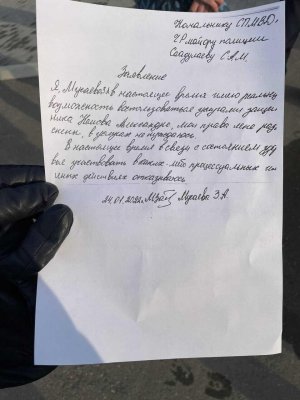 Начальнику СП МВД,
ЧР майору полиции
Сайдулаеву С.А М.
Заявление
Я, Мусаева З.А в настоящее время имею реальную
возможность воспользоваться услугами защит
ника Немова Александра, мои права мне раз
яснены, в услугах не нуждаюсь
В настоящее время в связи с состоянием здо
вья участвовать в каких либо процессуальных
иных действиях отказываюсь
24.01.2022г Мусаева З.А.